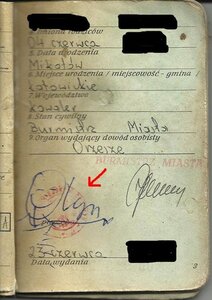 04 czerwca
5. Data urodzenia
Mikołów
6. Miejsce urodzenia / miejscowość - gmina /
katowickie
7. Województwo
kawaler
8. Stan cywilny
Burmistrz Miasta
9. Organ wydający dowód osobisty
Orzesze
BURMISTRZ MIASTA
23 czerwca
Data wydania
3